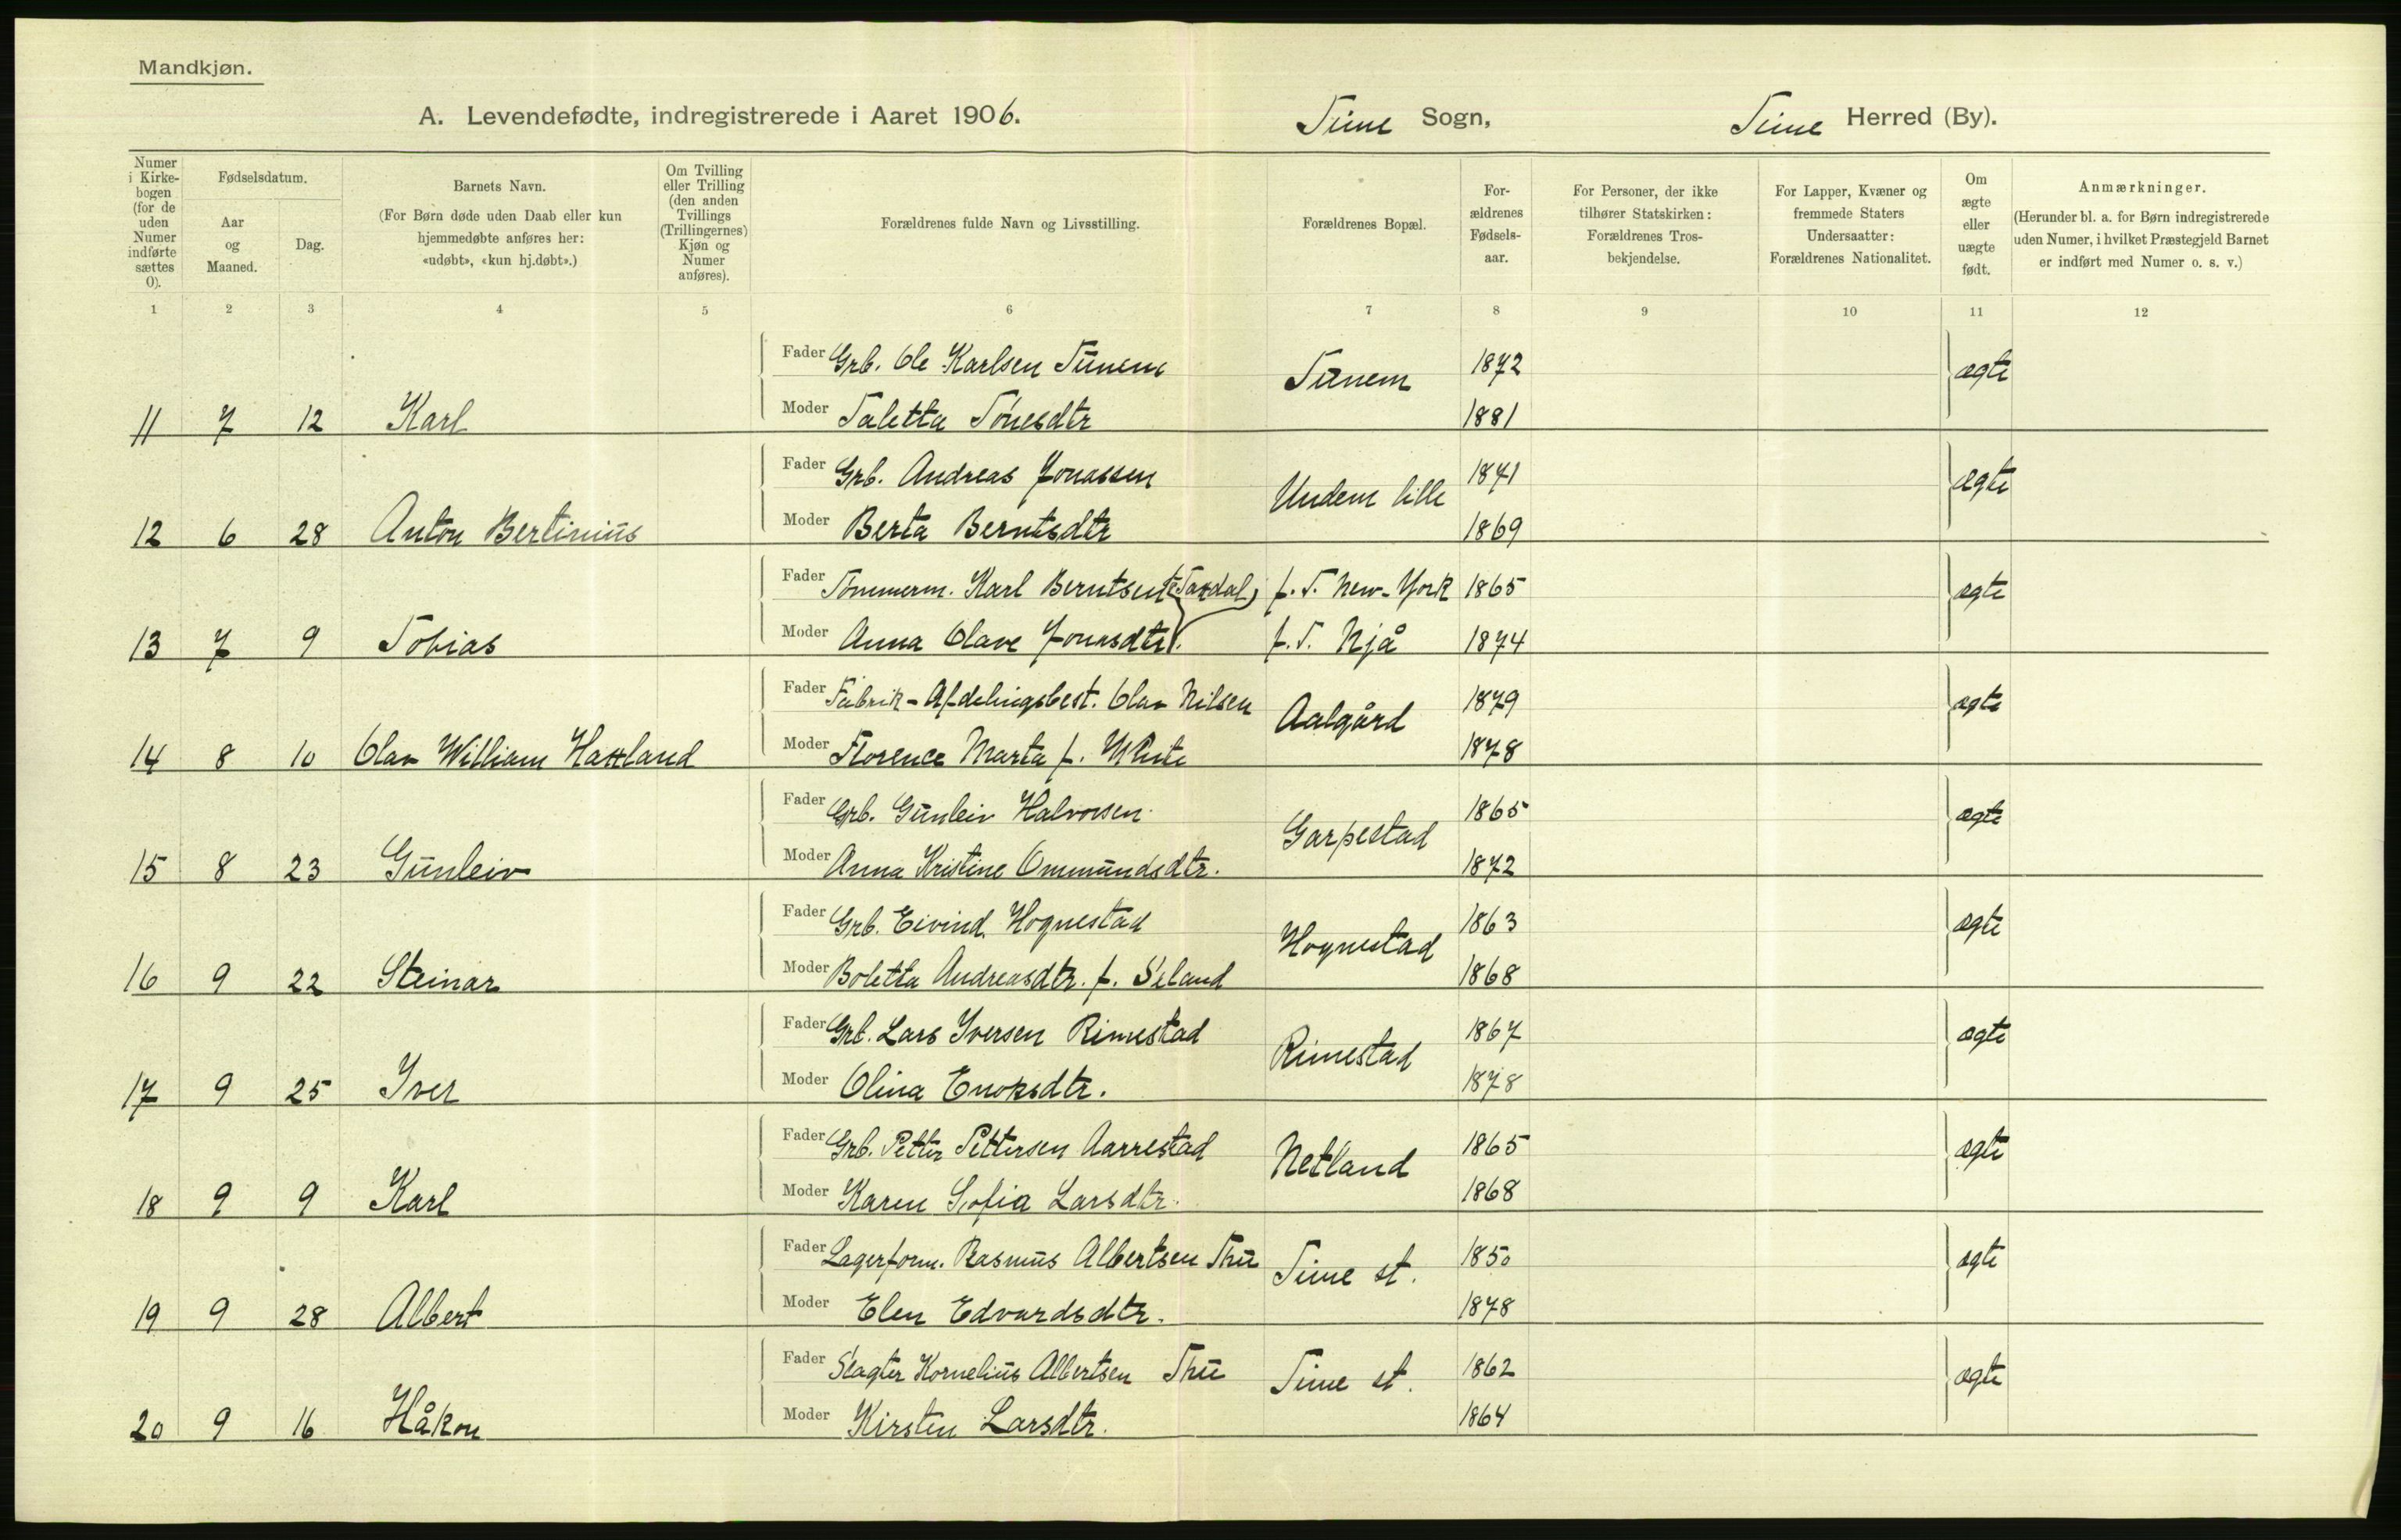 Mandkjøn.
A. Levendefødte, indregistrerede i Aaret 1906. Time Sogn, Time Herred (By).
Numer i Kirkebogen (for de uden Numer indførte sættes 0).
Fødselsdatum.
Aar og Maaned.
Dag.
Barnets Navn.
(For Børn døde uden Daab eller kun hjemmedøbte anføres her: «udøbt», «kun hj.døbt».)
Om Tvilling eller Trilling (den anden Tvillings (Trillingernes) Kjøn og Numer anføres).
Forældrenes fulde Navn og Livsstilling.
Forældrenes Bopæl.
Forældrenes Fødselsaar.
For Personer, der ikke tilhører Statskirken: Forældrenes Trosbekjendelse.
For Lapper, Kvæner og fremmede Staters Undersaatter: Forældrenes Nationalitet.
Om ægte eller uægte født.
Anmærkninger.
(Herunder bl. a. for Børn indregistrerede uden Numer, i hvilket Præstegjeld Barnet er indført med Numer o. s. v.)
1 2 3 4 5 6 7 8 9 10 11 12
Fader Grb. Ole Karlsen Tunem Tunem 1872 ægte
11 7 12 Karl Moder Taletta Tønesdtr 1881
Fader Grb. Andreas Jonassen Undem lille 1841 ægte
12 6 28 Anton Bertinius Moder Berta Berntsdtr 1869
Fader Tømmerm. Karl Berntsen f. T. New-York 1865 ægte
13 7 9 Tobias Moder Anna Olave Jonasdtr. f. T. Njå 1874
Fader Fabrik-Afdelingsbest. Olav Nilsen Aalgård 1879 ægte
14 8 10 Olav William Hattland Moder Florence Marta f. White 1878
Fader Grb. Gunleiv Halvorsen Garpestad 1865 ægte
15 8 23 Gunleiv Moder Anna Kristine Ommundsdtr. 1872
Fader Grb. Eivind Hognestad Hognestad 1863 ægte
16 9 22 Steinar Moder Boletta Andreasdtr. f. Seland 1868
Fader Grb. Lars Iversen Rimestad Rimestad 1867 ægte
17 9 25 Iver Moder Olina Enoksdtr. 1878
Fader Grb. Petter Pettersen Aarrestad Netland 1865 ægte
18 9 9 Karl Moder Karen Sofia Larsdtr. 1868
Fader Lagerform. Rasmus Albertsen Thu Time st. 1850 ægte
19 9 28 Albert Moder Elen Edvardsdtr. 1878
Fader Slagter Kornelius Albertsen Thu Time st. 1862 ægte
20 9 16 Håkon Moder Kirsten Larsdtr. 1864